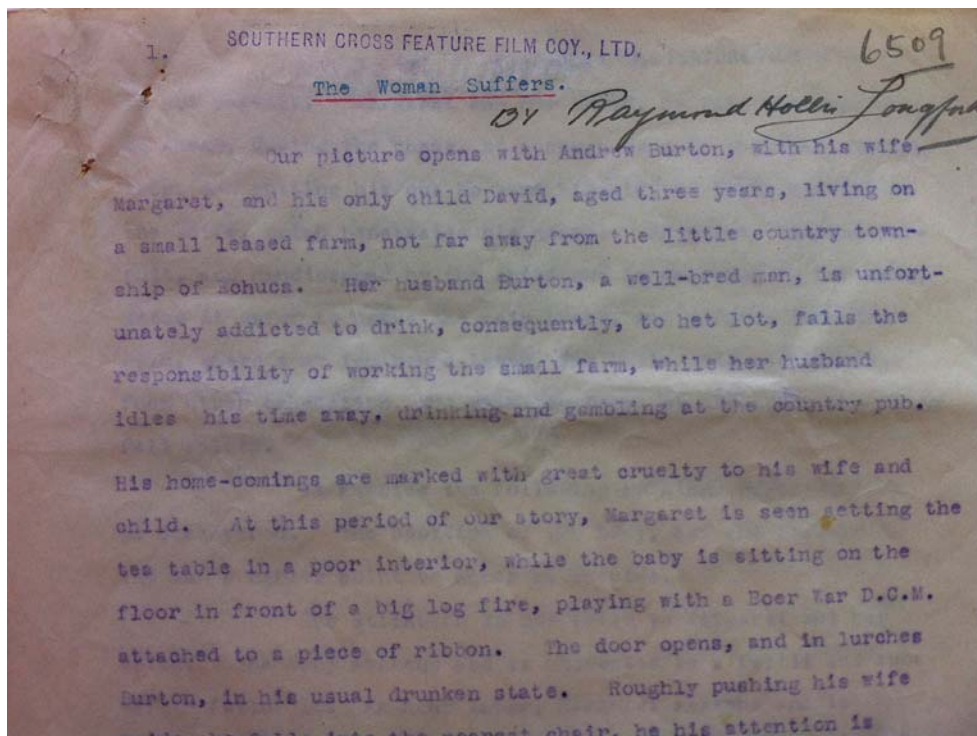 1.
SOUTHERN CROSS FEATURE FILM COY., LTD.
6509
The Woman Suffers.
BY Raymond Hollis Longford
Our picture opens with Andrew Burton, with his wife,
Margaret, and his only child David, aged three years, living on
a small leased farm, not far away from the little country town-
ship of Echuca. Her husband Burton, a well-bred man, is unfort-
unately addicted to drink, consequently, to het lot, falls the
responsibility of working the small farm, while her husband
idles his time away, drinking and gambling at the country pub.
His home-comings are marked with great cruelty to his wife and
child. At this period of our story, Margaret is seen setting the
tea table in a poor interior, while the baby is sitting on the
floor in front of a big log fire, playing with a Boer War D.C.M.
attached to a piece of ribbon. The door opens, and in lurches
Burton, in his usual drunken state. Roughly pushing his wife
he falls into the nearest chair, he his attention is